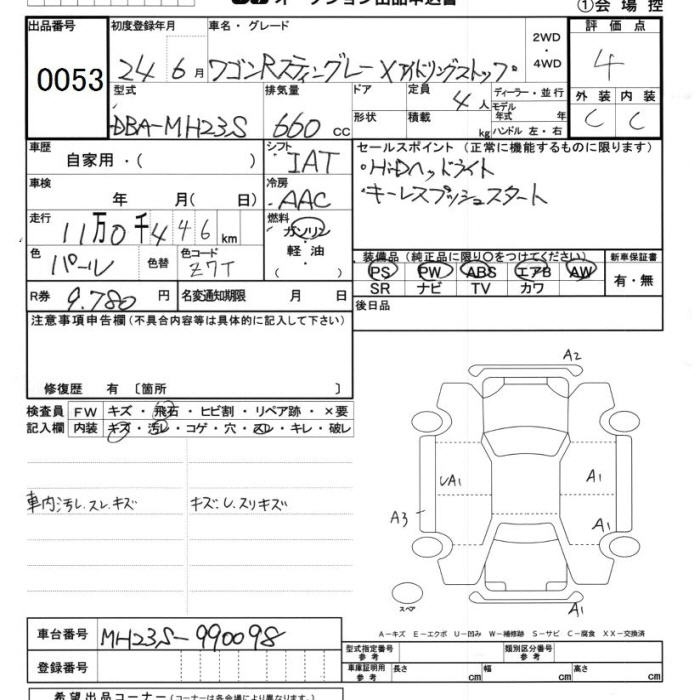 オークション出品申込書
①会場控
出品番号 初度登録年月 車名・グレード 2WD・4WD 評価点
0053 24 6月 ワゴンRスティングレー Xアイドリングストップ 4
型式 排気量 ドア 定員 ディーラー・並行 外装 内装
DBA-MH23S 660cc 4人 モデル年式 年 C C
形状 積載 kg ハンドル 左・右
車歴 シフト セールスポイント (正常に機能するものに限ります)
自家用・( ) IAT ・HiDヘッドライト
車検 冷房 ・キーレスプッシュスタート
年 月( 日) AAC
走行 燃料
11万0千446km ガソリン
軽油
( )
色 色替 色コード 装備品 (純正品に限り○をつけてください) 新車保証書
パール Z7T PS PW ABS エアB AW 有・無
SR ナビ TV カワ
R券 9.780円 名変通知期限 月 日 後日品
注意事項申告欄(不具合内容等は具体的に記入して下さい)
修復歴 有 〔箇所 〕
検査員 FW キズ・飛石・ヒビ割・リペア跡・×要
記入欄 内装 キズ・汚レ・コゲ・穴・スレ・キレ・破レ
車内汚し.スレ.キズ キズ.U.スリキズ
A2
UA1 A1
A3 A1
スペア A1
A−キズ E−エクボ U−凹み W−補修跡 S−サビ C−腐食 XX−交換済
車台番号 MH23S-990098
登録番号
型式指定番号 参考 類別区分番号 参考
車庫証明用 参考 長さ cm 幅 cm 高さ cm
希望出品コーナー(コーナーは各会場により異なります。)